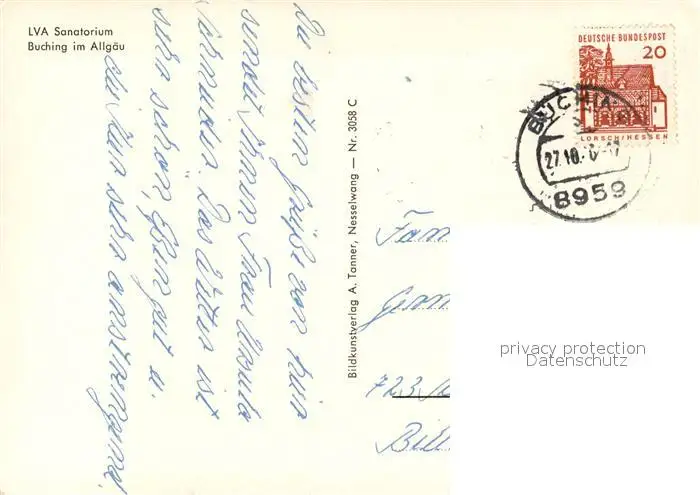 LVA Sanatorium
Buching im Allgäu
DEUTSCHE BUNDESPOST
20
LORSCH/HESSEN
BUCHING
27.10.
8959
Die besten Grüße von hier
sendet Ihnen Frau Ursula
Das Wetter ist
sehr schön, Essen gut u.
die Kur sehr anstrengend.
Bildkunstverlag A. Tanner, Nesselwang — Nr. 3058 C
Fam
723
privacy protection
Datenschutz